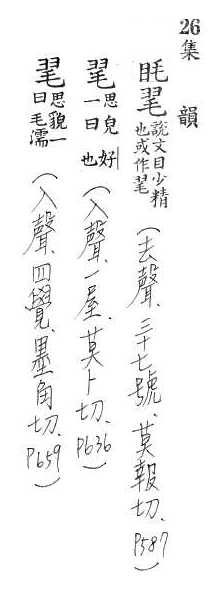 26
集韻
眊毣 說文目少精也或作毣 (去聲、三十七號、莫報切、P587)
毣 思皃一曰好也 (入聲、一屋、莫卜切、P636)
毣 思貌一曰毛濡 (入聲、四覺、墨角切、P659)